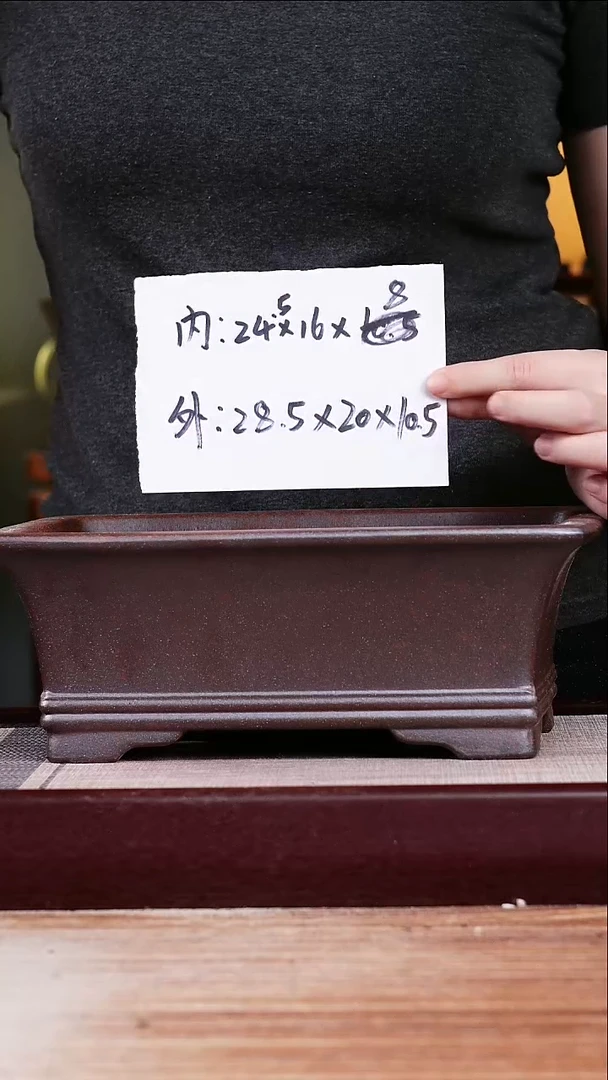 内:24.5×16×8
外:28.5×20×10.5